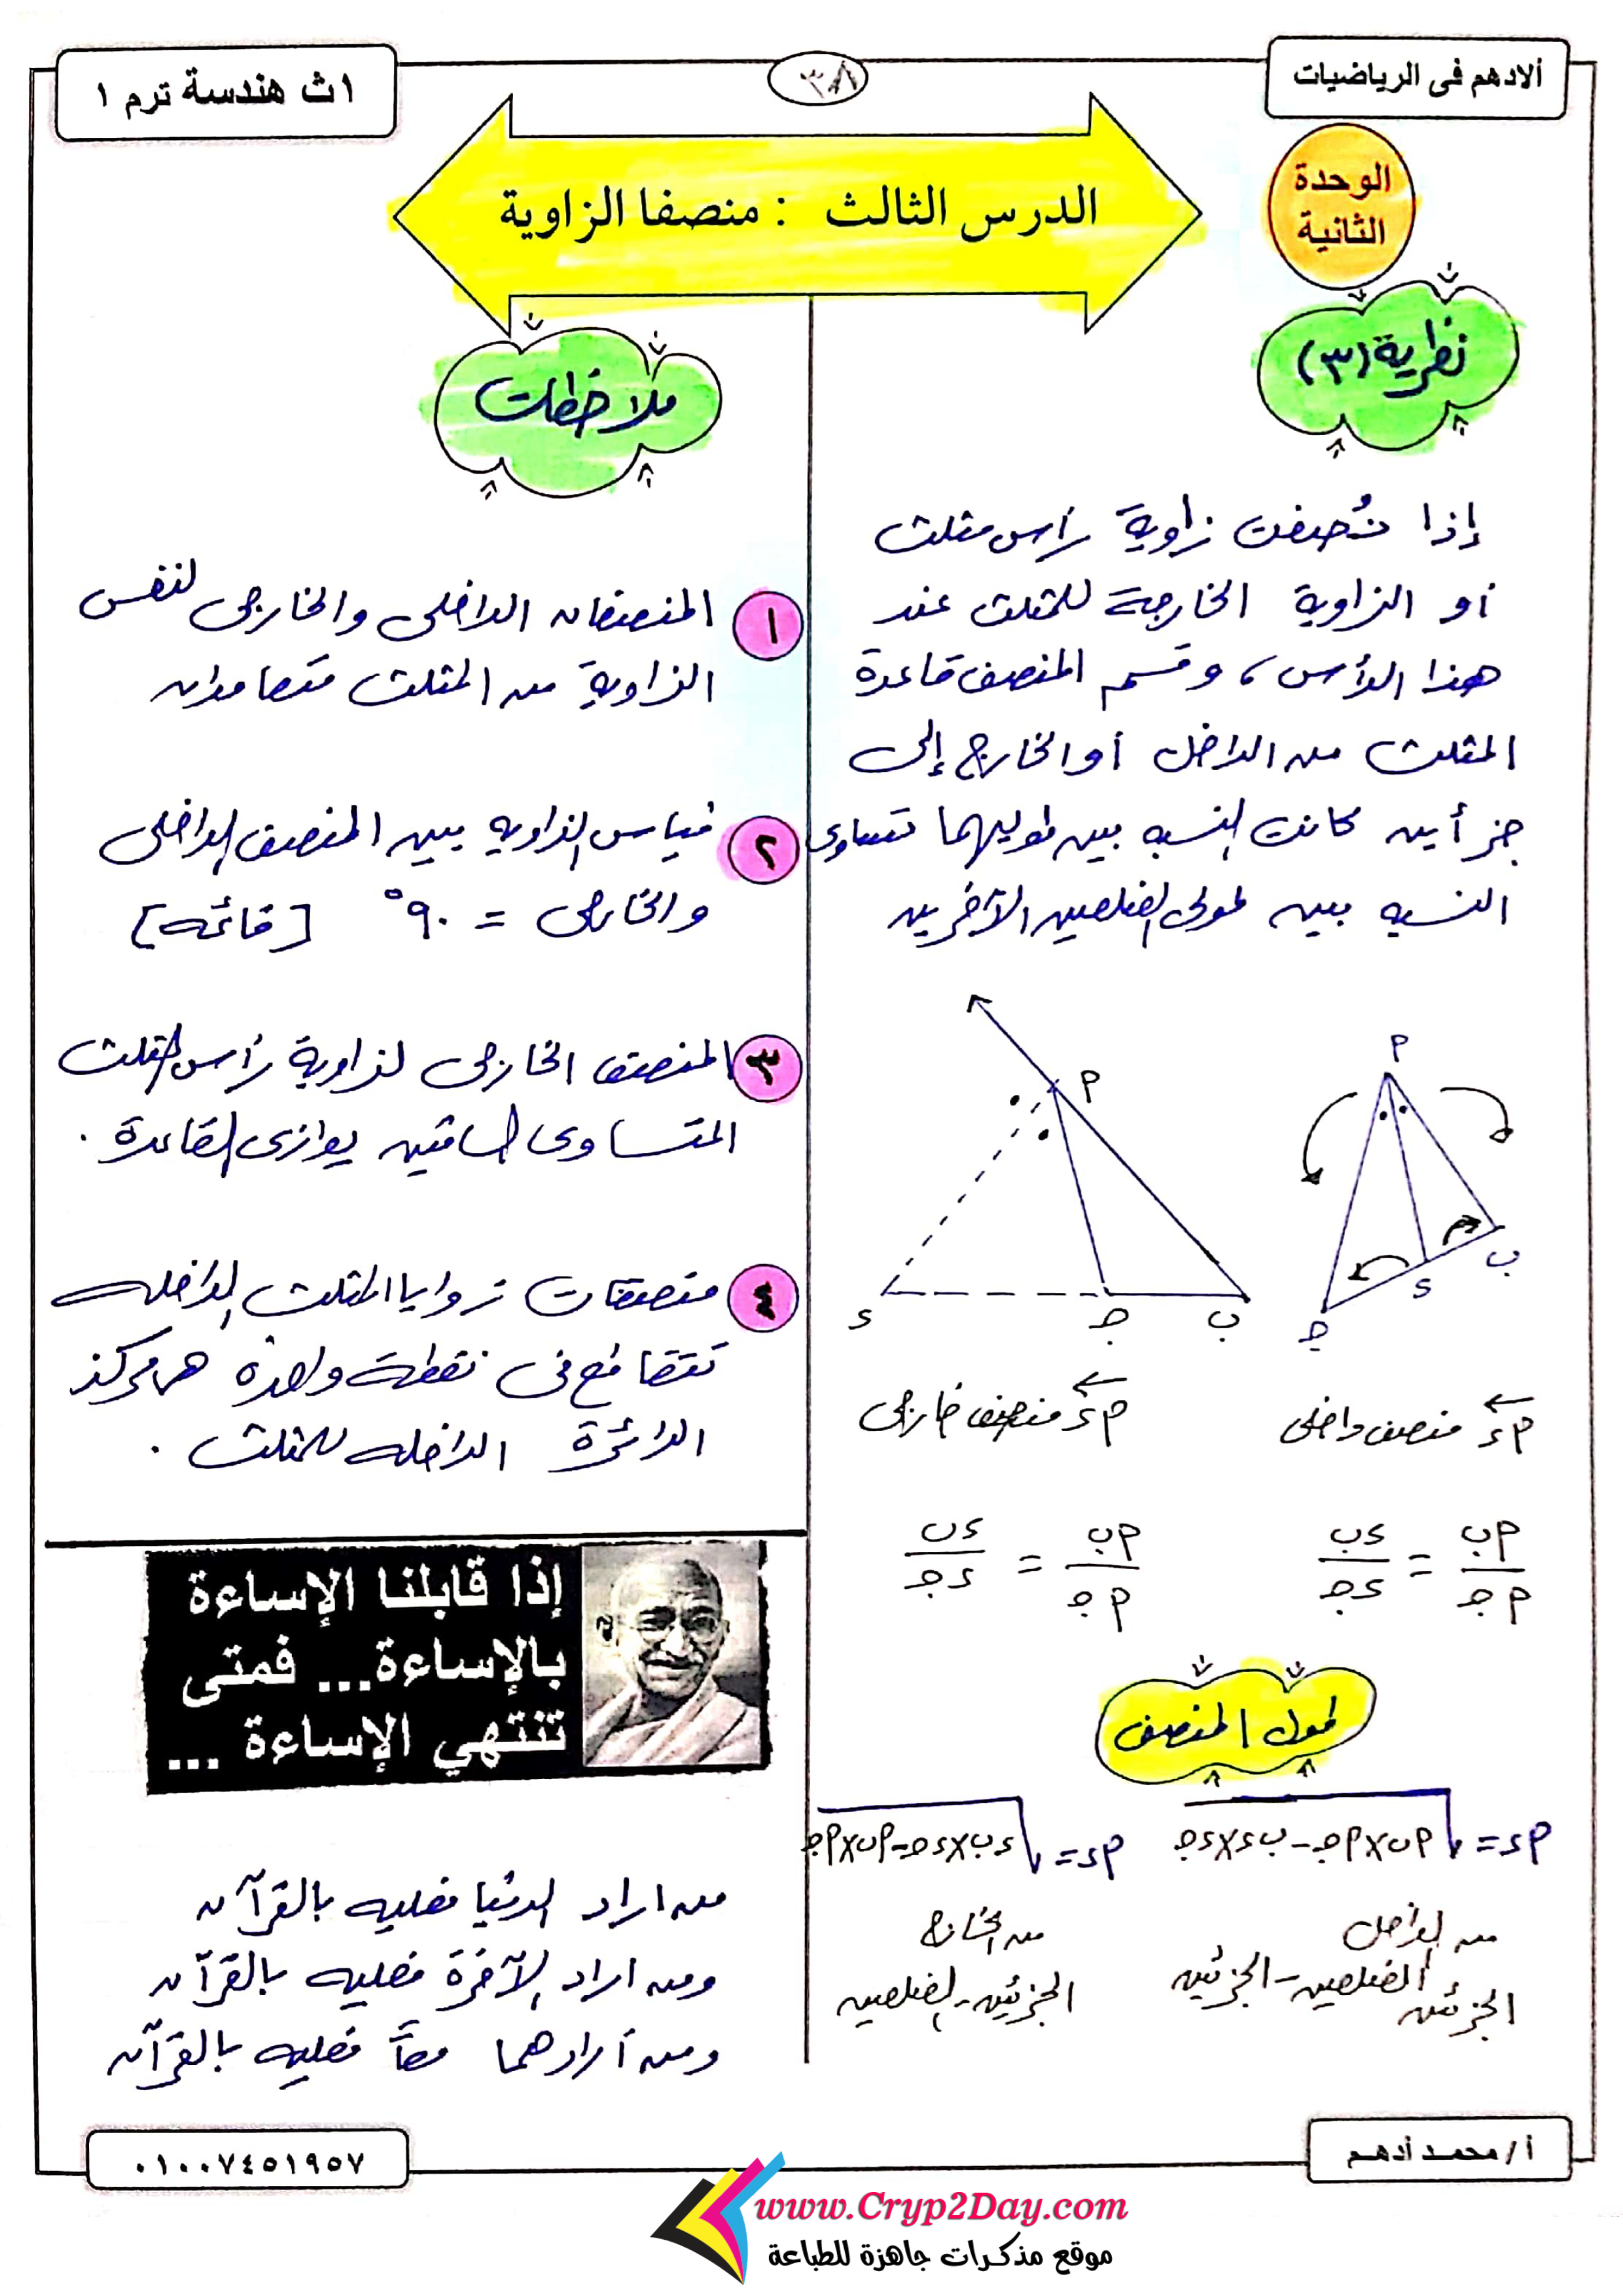 ألادهم فى الرياضيات
٣٨
١ث هندسة ترم ١
الوحدة
الثانية
الدرس الثالث : منصفا الزاوية
نظرية (٣)
إذا نُصفت زاوية رأس مثلث
أو الزاوية الخارجة للمثلث عند
هذا الرأس، وقسم المنصف قاعدة
المثلث من الداخل أو الخارج إلى
جزأين كانت النسبه بين طوليهما تساوى
النسبه بين طولى الضلعين الآخرين
م
ب
ء
جـ
م
ب
جـ
ء
مء منصف داخلى
مء منصف خارجى
مب / مجـ = ءب / ءجـ
مب / مجـ = ءب / ءجـ
طول المنصف
مء = √(مب × مجـ - بء × ءجـ)
من الداخل
الضلعين - الجزئين
الجزئين
مء = √(ءب × ءجـ - مب × مجـ)
من الخارج
الجزئين - الضلعين
ملاحظات
١ المنصفان الداخلى والخارجى لنفس
الزاوية من المثلث متعامدان
٢ قياس الزاويه بين المنصف الداخلى
والخارجى = ٩٠° [قائمه]
٣ المنصف الخارجى لزاوية رأس المثلث
المتساوى الساقين يوازى القاعدة .
٤ منصفات زوايا المثلث الداخله
تتقاطع فى نقطة واحدة هى مركز
الدائرة الداخله للمثلث .
إذا قابلنا الإساءة
بالإساءة... فمتى
تنتهي الإساءة ...
من اراد الدنيا فعليه بالقرآن
ومن اراد الآخرة فعليه بالقرآن
ومن أرادهما معاً فعليه بالقرآن
أ/ محمد أدهم
٠١٠٠٧٤٥١٩٥٧
www.Cryp2Day.com
موقع مذكرات جاهزة للطباعة